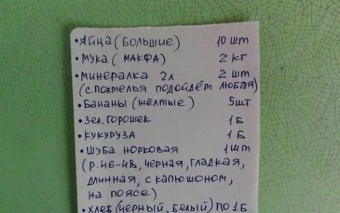 •ЯЙЦА (БОЛЬШИЕ) 10 ШТ
•МУКА (МАКФА) 2 КГ
•МИНЕРАЛКА 2Л 2 ШТ
(С ПОХМЕЛЬЯ ПОДОЙДЁТ ЛЮБАЯ)
•БАНАНЫ (ЖЁЛТЫЕ) 5ШТ
•ЗЕЛ. ГОРОШЕК 1Б
•КУКУРУЗА 1Б
•ШУБА НОРКОВАЯ 1ШТ
(Р. 46-48, ЧЁРНАЯ, ГЛАДКАЯ,
ДЛИННАЯ, С КАПЮШОНОМ,
НА ПОЯСЕ)
•ХЛЕБ (ЧЕРНЫЙ, БЕЛЫЙ) ПО 1Б